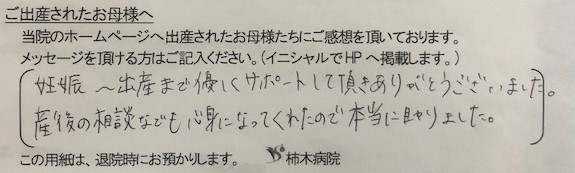 ご出産されたお母様へ
当院のホームページへ出産されたお母様たちにご感想を頂いております。
メッセージを頂ける方はご記入ください。(イニシャルでHPへ掲載します。)
妊娠～出産まで優しくサポートして頂きありがとうございました。
産後の相談などでも心身になってくれたので本当に助かりました。
この用紙は、退院時にお預かりします。 柿木病院